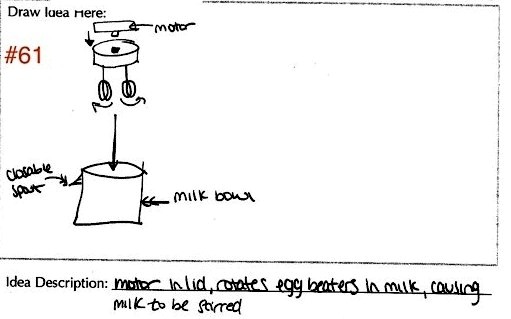 Draw Idea Here:
motor
#61
closable
spout
milk bowl
Idea Description: motor in lid, rotates egg beaters in milk, causing
milk to be stirred